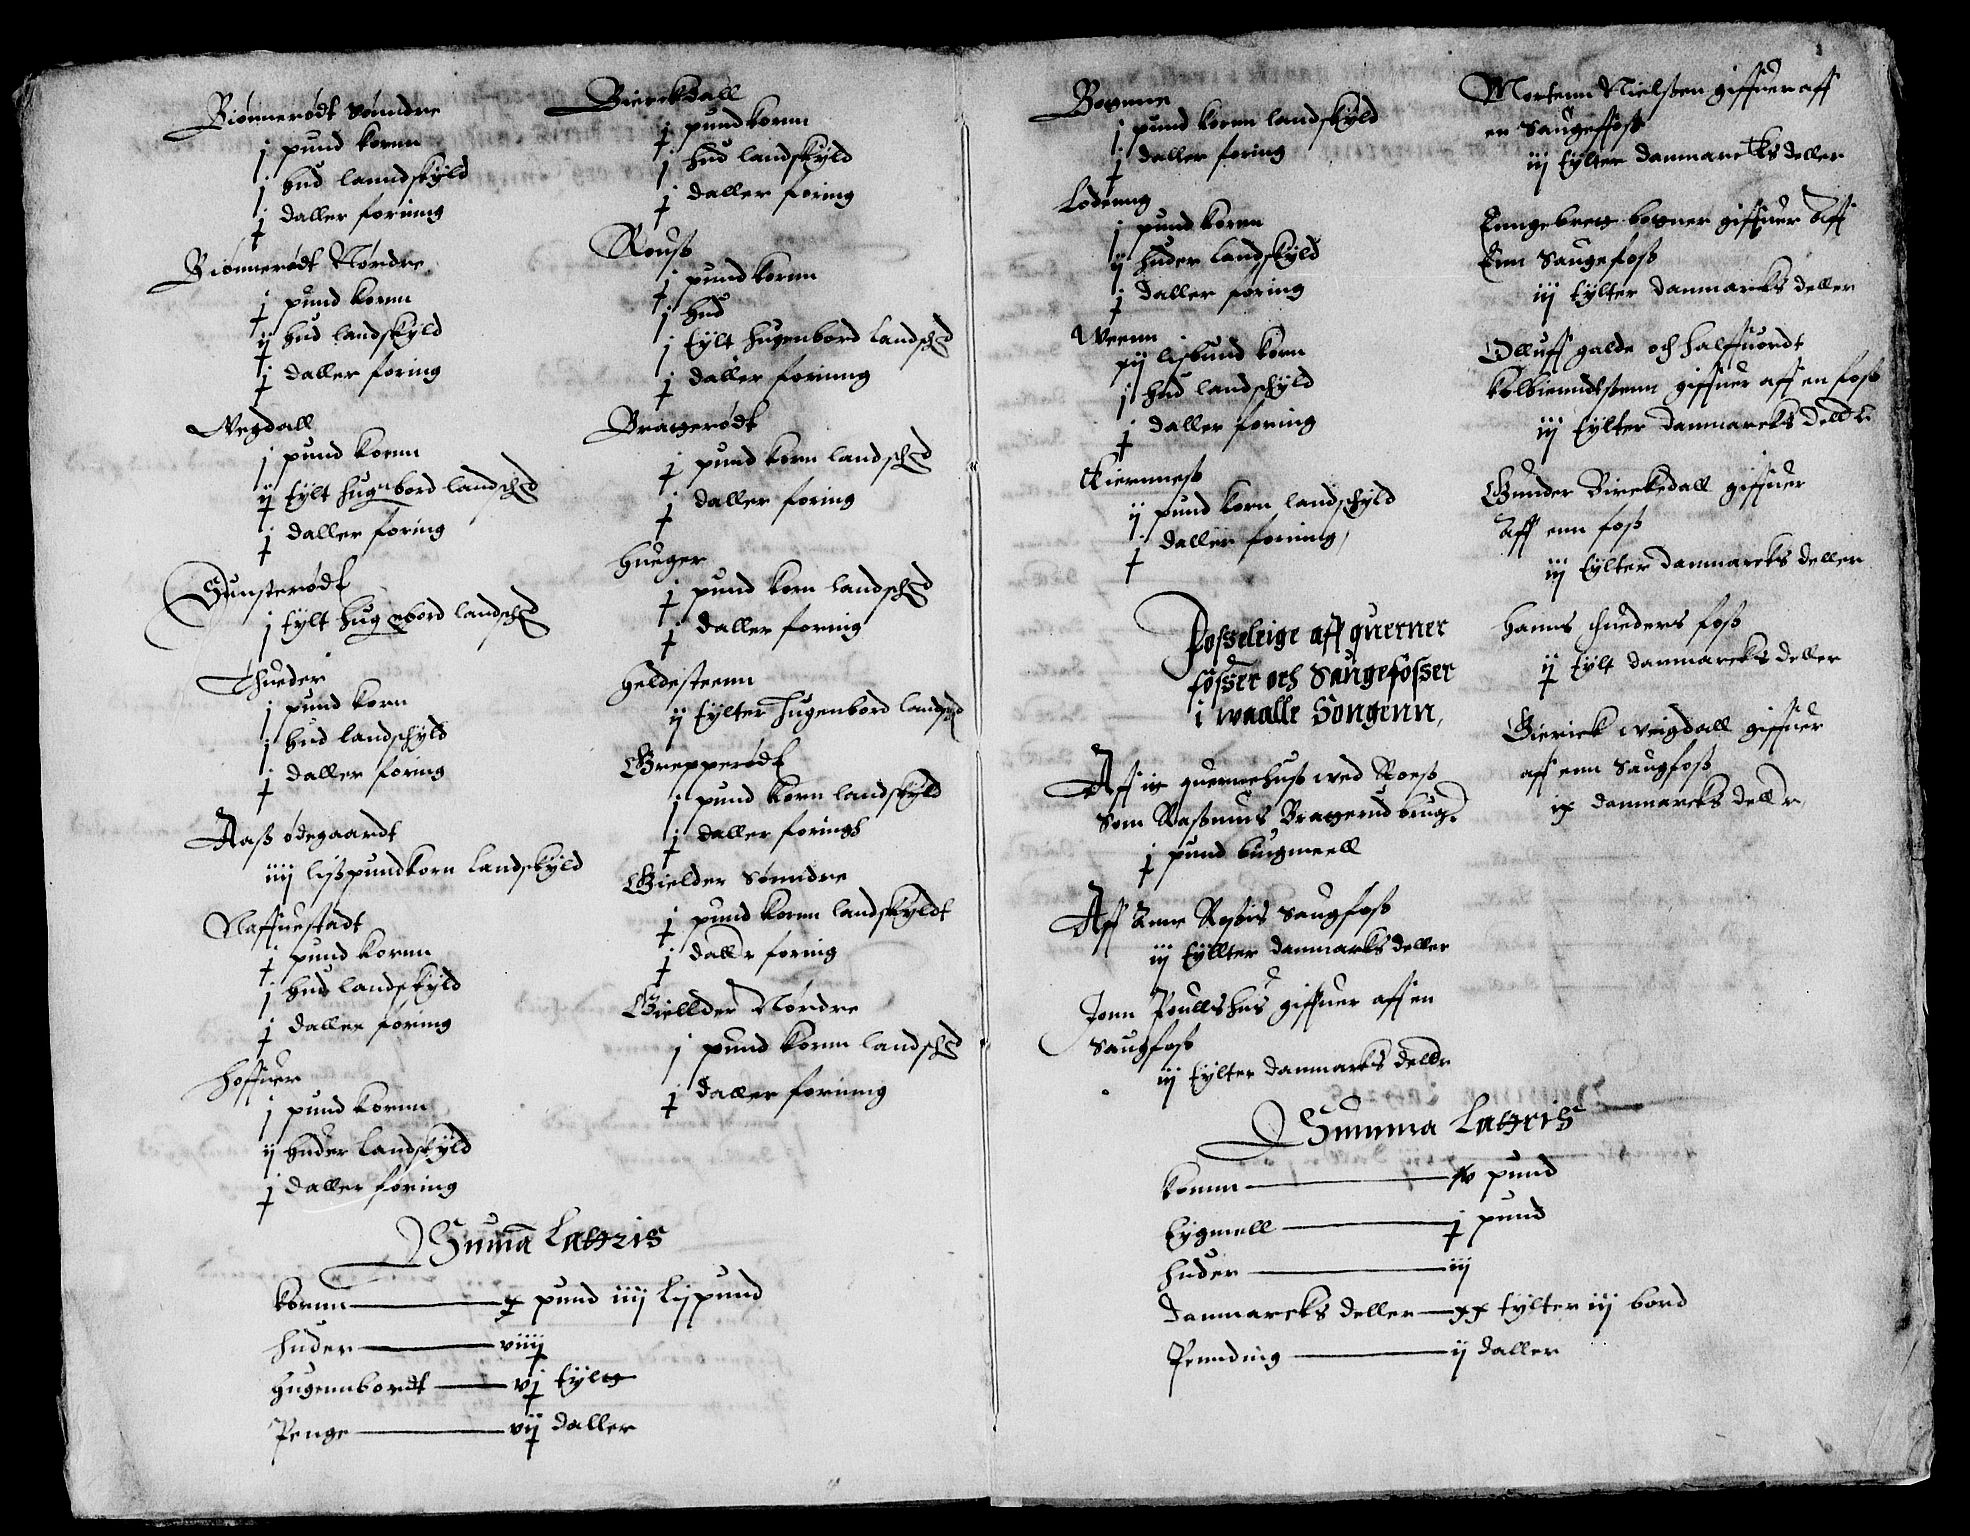 Biønnerødt Sønndre
j pund kornn
j hud lanndskyld
j daller forinng
Biønnerødt Nørdre
j pund kornn
ij hud landskyld
j daller foring
Vegdall
j pund kornn
ij tylt hugenbord landschd
j daller foring
Gunsterødt
j tylt hugenbord landschd
Thueder
j pund korn
j hud landschyld
j daller foring
Aass ødegaardt
iiij lisspundkorn landskyld
Naffuestadt
j pund kornn
j hud landskyld
j daller foring
Hoffuer
j pund kornn
ij huder landskyld
j daller foring
Suma Lateris
kornn x pund iiij lispund
huder viiij
Hugennbordt vj tylt
Penge vij daller
Bierckdall
j pundkornn
j hud landskyld
j daller foring
Rouss
j pund kornn
j hud
j tylt hugenbord landschd
j daller forinng
Bragerødt
j pund korn landschd
j daller foring
Hueger
j pund korn landschd
j daller foring
Heldesteenn
ij tylter hugenbord landschd
Grepperødt
j pund korn landskyld
j daller foringh
Gielder Sønndre
j pund kornn landskyldt
j daller foring
Giellder Nørdre
j pund kornn landschd
j daller forinng
j pund kornn landskyld
j daller foring
Lødenng
j pund kornn
ij huder landskyld
j daller foring
Weenn
xij lisbund korn
j hud landschyld
j daller foring
Kiernness
ij pund korn landschyld
j daller forinng,
Fosseleige aff querner
fosser och Saugefosser
i waalle Songenn,
Aff quernehuss wed Roess
Som Rassmus Bragerud brug
j pund bugmeell
Aff Saugfoss
iij tyllter danmarks deller
Jonn Poullshus giffuer aff en
Saugfoss
iij tylter danmarks delldr
Summa Lateris
kornn xv pund
pund
huder iij
Danmarcks deller xx tylter iij bord
Pennding ij daller
Mortenn Nielssen giffuer aff
en Saugeffoss
iij tylter danmarcks deller
Enngebret giffuer aff
Enn Saugefoss
iij tylter danmarcks deller
Olluff galde och halffuordt
kolbierndssenn giffuer aff en foss
iij tylter danmarcks delldr
Gunder Birckedall giffuer
Aff enn foss
iij tylter danmarcks deller
Hanns thueders foss
ij tylt danmarcks deller
Gierick Veigdall giffuer
aff enn Saugfoss
ix danmarcks delldr